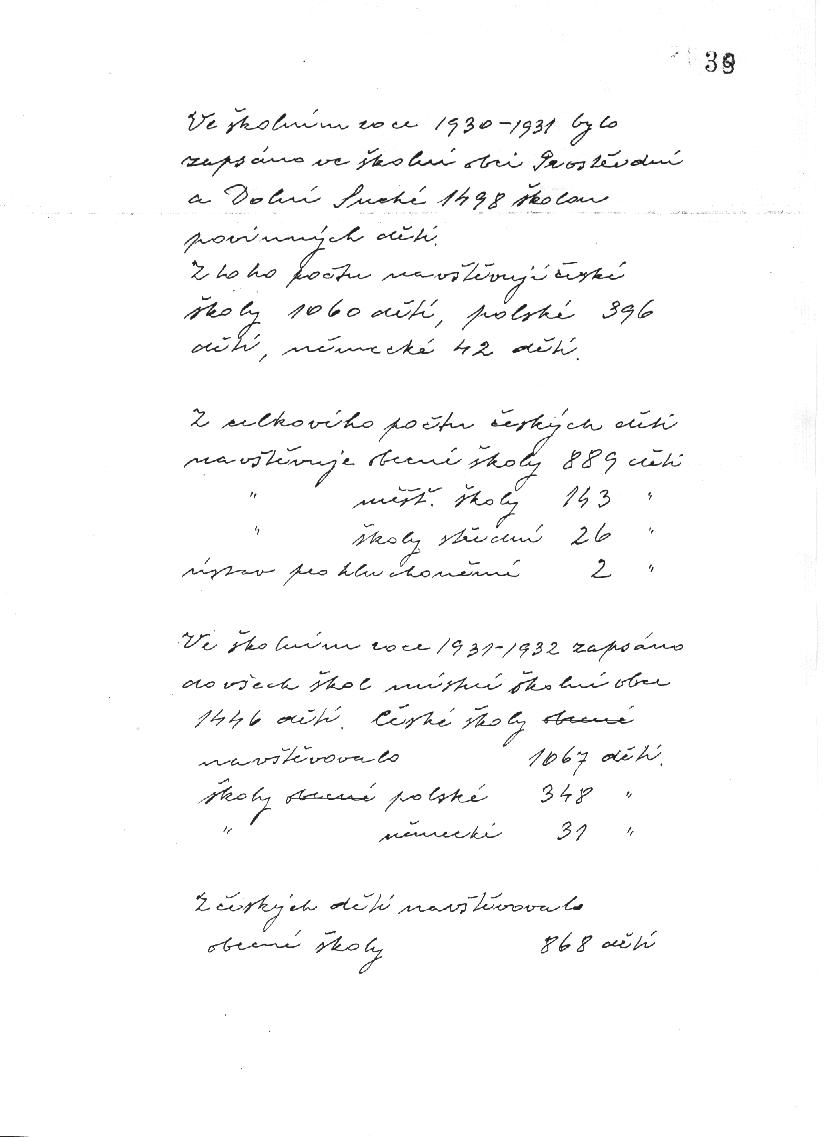 39
Ve školním roce 1930-1931 bylo
zapsáno ve školní obci Prostřední
a Dolní Suché 1498 školou
povinných dětí.
Z toho počtu navštěvují české
školy 1060 dětí, polské 396
dětí, německé 42 dětí.
Z celkového počtu českých dětí
navštěvuje obecné školy 889 dětí
" měšť. školy 143 "
" školy střední 26 "
ústav pro hluchoněmé 2 "
Ve školním roce 1931-1932 zapsáno
do všech škol místní školní obce
1446 dětí. České školy obecné
navštěvovalo 1067 dětí.
školy obecné polské 348 "
" německé 31 "
Z českých dětí navštěvovalo
obecné školy 868 dětí